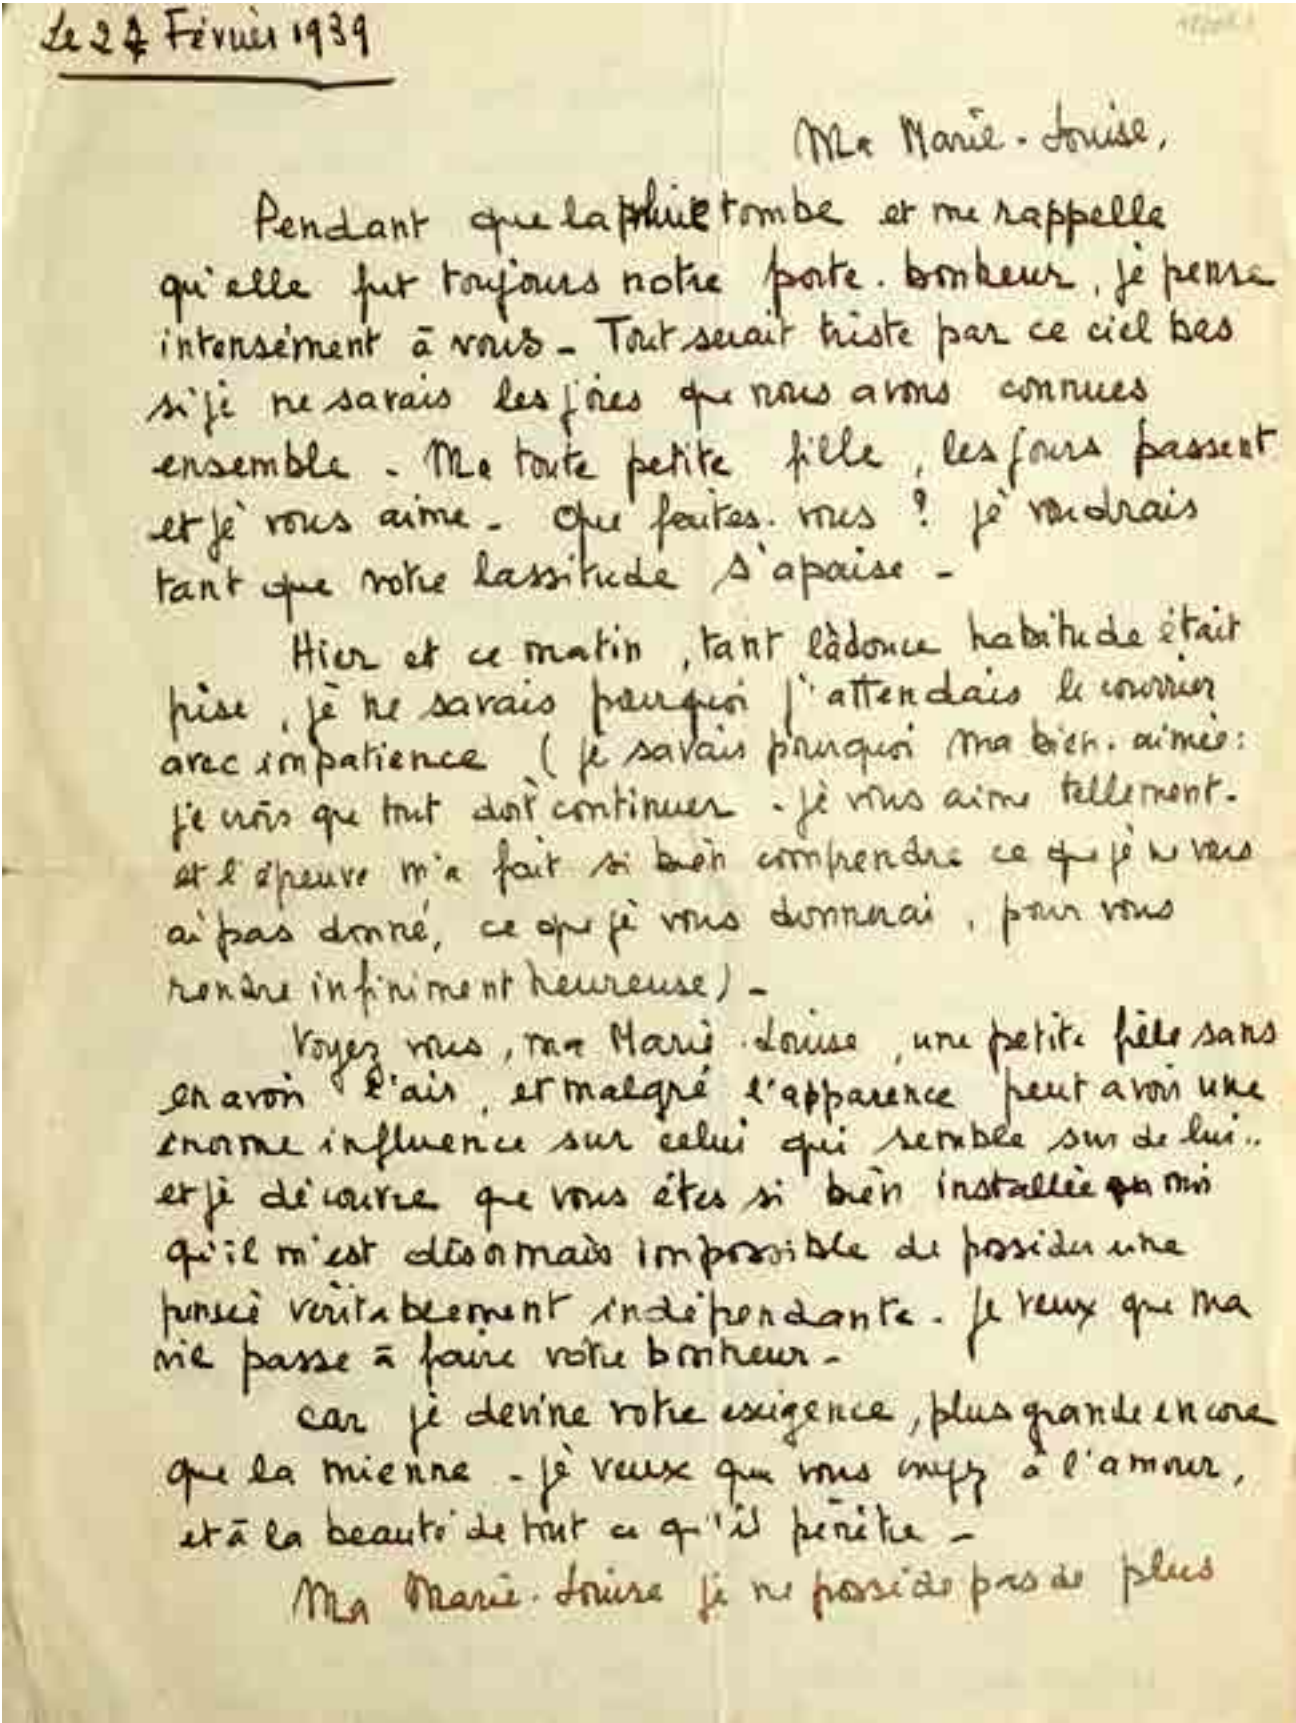 Le 27 Février 1939
Ma Marie-Louise,
Pendant que la pluie tombe et me rappelle
qu'elle fut toujours notre porte-bonheur, je pense
intensément à vous - Tout serait triste par ce ciel bas
si je ne savais les joies que nous avons connues
ensemble - Ma toute petite fille, les jours passent
et je vous aime - Que faites-vous ? je voudrais
tant que votre lassitude s'apaise -
Hier et ce matin, tant la douce habitude était
prise, je ne savais pourquoi j'attendais le courrier
avec impatience (je savais pourquoi ma bien-aimée :
je crois que tout doit continuer - je vous aime tellement -
et l'épreuve m'a fait si bien comprendre ce que je ne vous
ai pas donné, ce que je vous donnerai, pour vous
rendre infiniment heureuse) -
Voyez vous, ma Marie-Louise, une petite fille sans
en avoir l'air, et malgré l'apparence peut avoir une
énorme influence sur celui qui semble sur de lui..
et je découvre que vous êtes si bien installée en moi
qu'il m'est désormais impossible de posséder une
pensée véritablement indépendante. je veux que ma
vie passe à faire votre bonheur -
car je devine votre exigence, plus grande encore
que la mienne - je veux que vous croyez à l'amour,
et à la beauté de tout ce qu'il pénètre -
Ma Marie-Louise je ne possède pas de plus